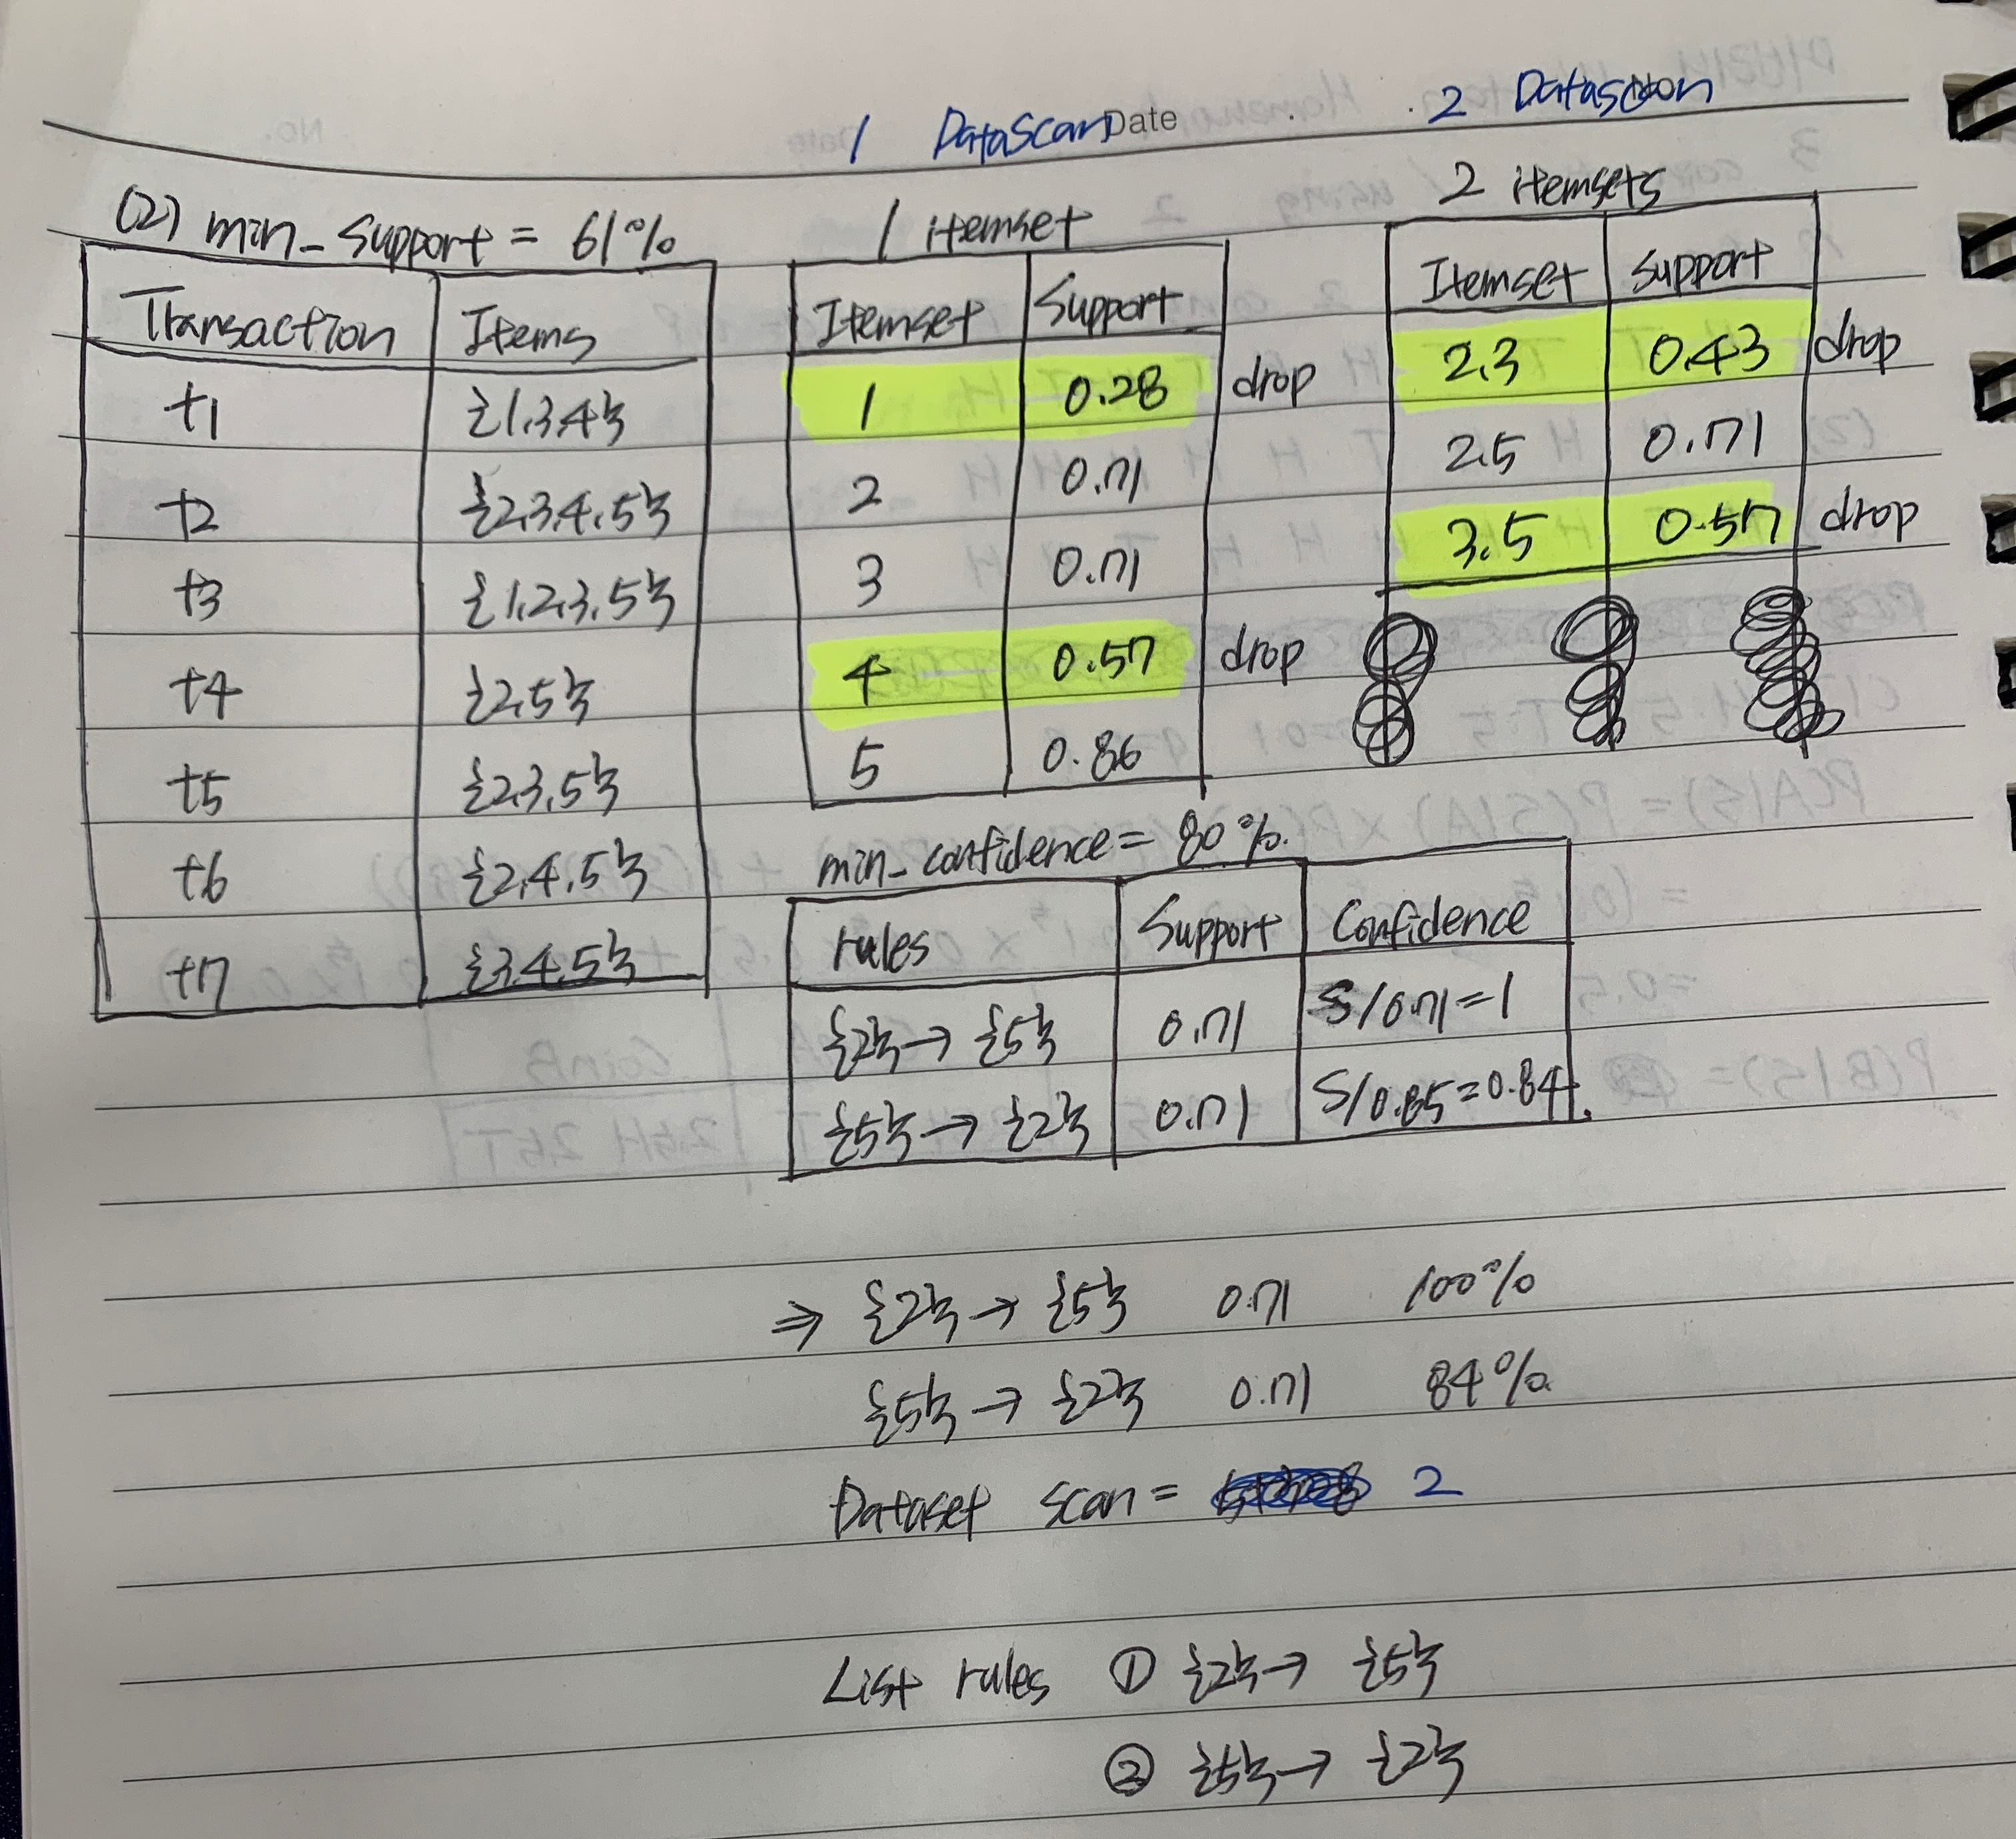 1 DataScan Date 2 Datascan
(2) min_support = 61%
Transaction Items
t1 {1,3,4}
t2 {2,3,4,5}
t3 {1,2,3,5}
t4 {2,5}
t5 {2,3,5}
t6 {2,4,5}
t7 {3,4,5}
1 itemset
Itemset Support
1 0.28 drop
2 0.71
3 0.71
4 0.57 drop
5 0.86
2 itemsets
Itemset Support
2,3 0.43 drop
2,5 0.71
3,5 0.57 drop
min_confidence = 80%.
rules Support Confidence
{2} → {5} 0.71 S/0.71=1
{5} → {2} 0.71 S/0.85=0.84.
⇒ {2} → {5} 0.71 100%
{5} → {2} 0.71 84%
Dataset scan = 2
List rules ① {2} → {5}
② {5} → {2}